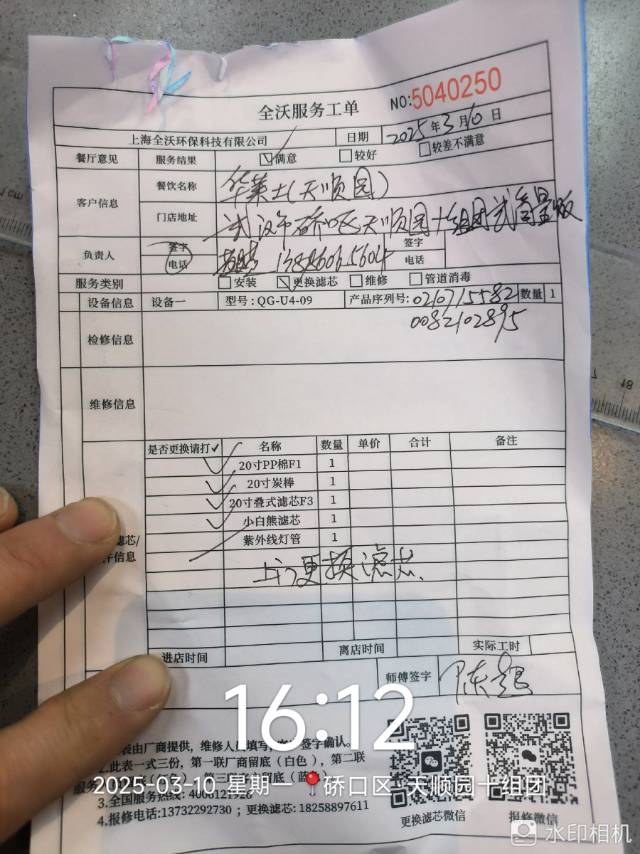 全沃服务工单
NO:5040250
上海全沃环保科技有限公司 日期 2025年3月10日
餐厅意见 服务结果 ☑满意 □较好 □较差不满意
客户信息 餐饮名称 华莱士(天顺园)
门店地址 武汉市硚口区天顺园十组团
负责人 签字 签字
电话 电话
服务类别 □安装 ☑更换滤芯 □维修 □管道消毒
设备信息 设备一 型号:QG-U4-09 产品序列号:0210715582 数量 1
0082102895
检修信息
维修信息
是否更换请打✓ 名称 数量 单价 合计 备注
✓ 20寸PP棉F1 1
✓ 20寸炭棒 1
✓ 20寸叠式滤芯F3 1
✓ 小白熊滤芯 1
紫外线灯管 1
滤芯/
件信息
上门更换滤芯
进店时间 离店时间 实际工时
师傅签字 陈
16:12
表由厂商提供，维修人 填写 签字确认。
2.此表一式三份，第一联厂商留底（白色），第二联
2025-03-10 星期一 硚口区·天顺园十组团
3.全国服务热线:
4.报修电话:13732292730；更换滤芯:18258897611
更换滤芯微信 报修微信
水印相机